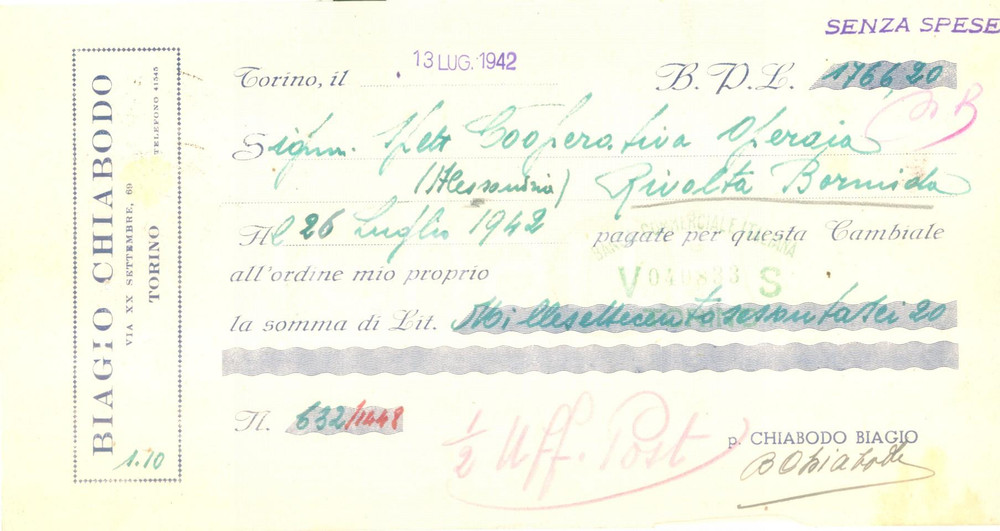 SENZA SPESE
BIAGIO CHIABODO
VIA XX SETTEMBRE, 69
TELEFONO 41545
TORINO
1.10
Torino, il 13 LUG. 1942 B. P. L. 1766,20
Sign. Spett Cooperativa Operaia
(Alessandria) Rivolta Bormida
Al 26 Luglio 1942 pagate per questa Cambiale
BANCA COMMERCIALE ITALIANA
all'ordine mio proprio
V 040833 S
la somma di Lit. Millesettecentosessantasei 20
N. 632/1448
1/2 Uff. Post
p. CHIABODO BIAGIO
B Chiabodo